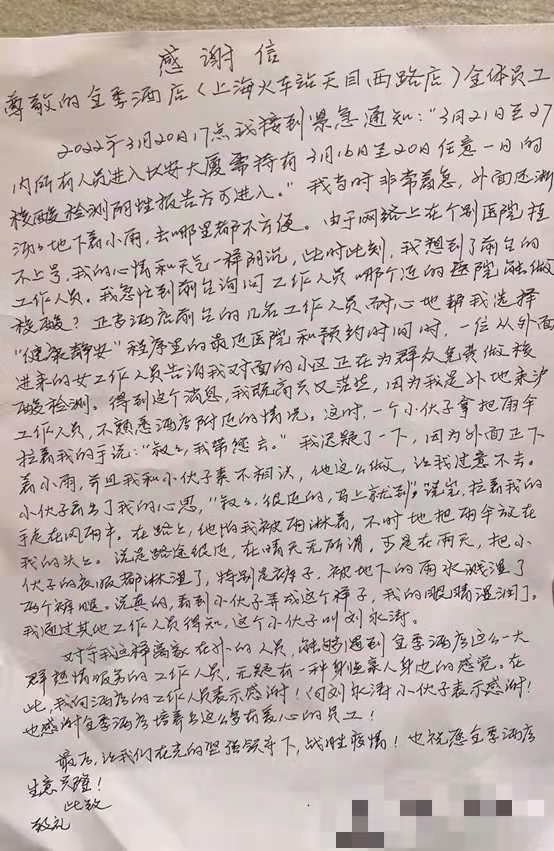 感谢信
尊敬的全季酒店（上海火车站天目西路店）全体员工
2022年3月20日17点我接到紧急通知：“3月21日至27
内所有人员进入长安大厦需持有3月16日至20日任意一日的
核酸检测阴性报告方可进入。”我当时非常着急，外面还淅
沥沥地下着小雨，去哪里都不方便。由于网络上在个别医院挂
不上号，我的心情和天气一样阴沉，此时此刻，我想到了前台的
工作人员。我急忙到前台询问工作人员哪个近的医院能做
核酸？正当酒店前台的几名工作人员耐心地帮我选择
“健康静安”程序里的最近医院和预约时间时，一位从外面
进来的女工作人员告诉我对面的小区正在为群众免费做核
酸检测。得到这个消息，我既高兴又茫然，因为我是外地来沪
工作人员，不熟悉酒店附近的情况。这时，一个小伙子拿把雨伞
拉着我的手说：“叔叔，我带您去。”我迟疑了一下，因为外面正下
着小雨，并且我和小伙子素不相识，他这么做，让我过意不去。
小伙子看出了我的心思，“叔叔，很近的，马上就到”。说完，拉着我的
手走在风雨中。在路上，他怕我被雨淋着，不时地把雨伞放在
我的头上。说是路途很近，在晴天无所谓，可是在雨天，把小
伙子的衣服都淋湿了，特别是裤子，被地下的雨水溅湿了
两个裤腿。说真的，看到小伙子弄成这个样子，我的眼睛湿润了。
我通过其他工作人员得知，这个小伙子叫刘永涛。
对于我这样离家在外的人员，能够遇到全季酒店这么一大
群热情服务的工作人员，无疑有一种身临亲人身边的感觉。在
此，我向酒店的工作人员表示感谢！向刘永涛小伙子表示感谢！
也感谢全季酒店培养出这么富有爱心的员工！
最后，让我们在党的坚强领导下，战胜疫情！也祝愿全季酒店
生意兴隆！
此致
敬礼